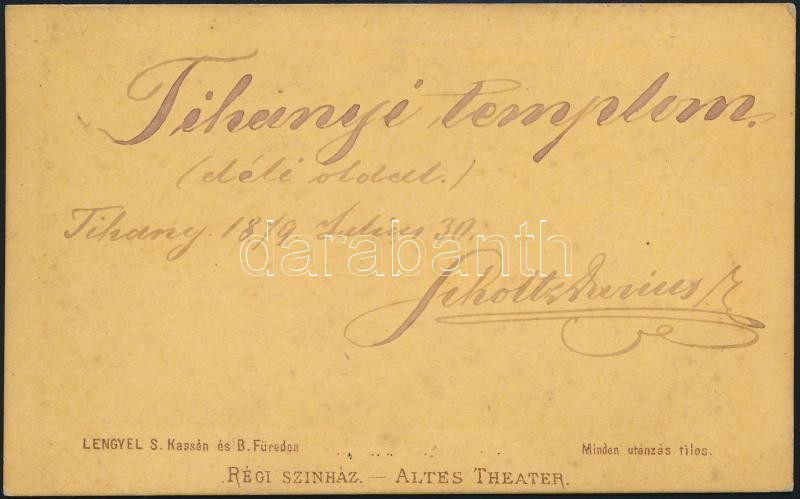 Tihanyi templom.
(déli oldal.)
Tihany. 1879. Julius 30.
darabanth
Scholtz Darius
LENGYEL S. Kassán és B. Füreden
Minden utánzás tilos.
RÉGI SZINHÁZ. — ALTES THEATER.